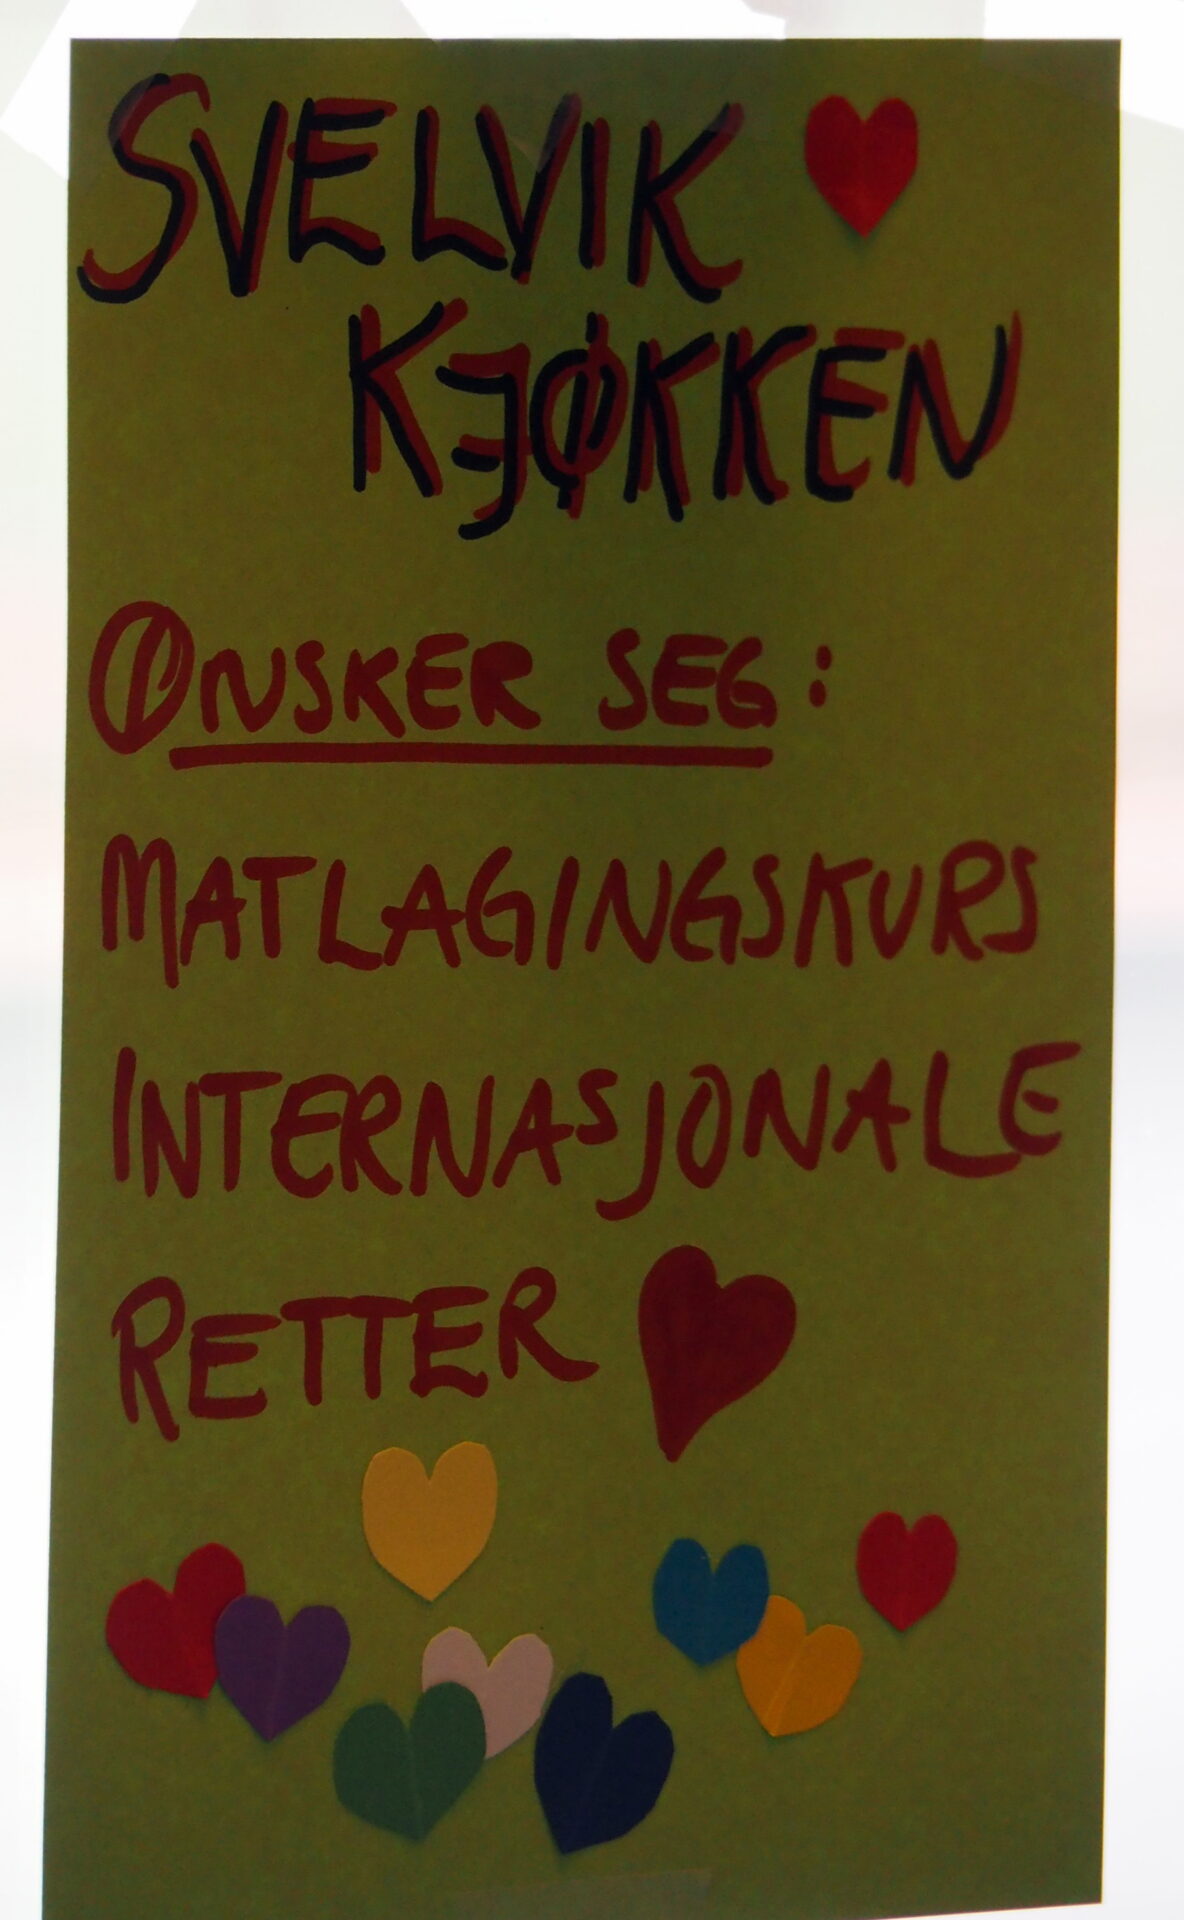 SVELVIK
KJØKKEN
ØNSKER SEG:
MATLAGINGSKURS
INTERNASJONALE
RETTER